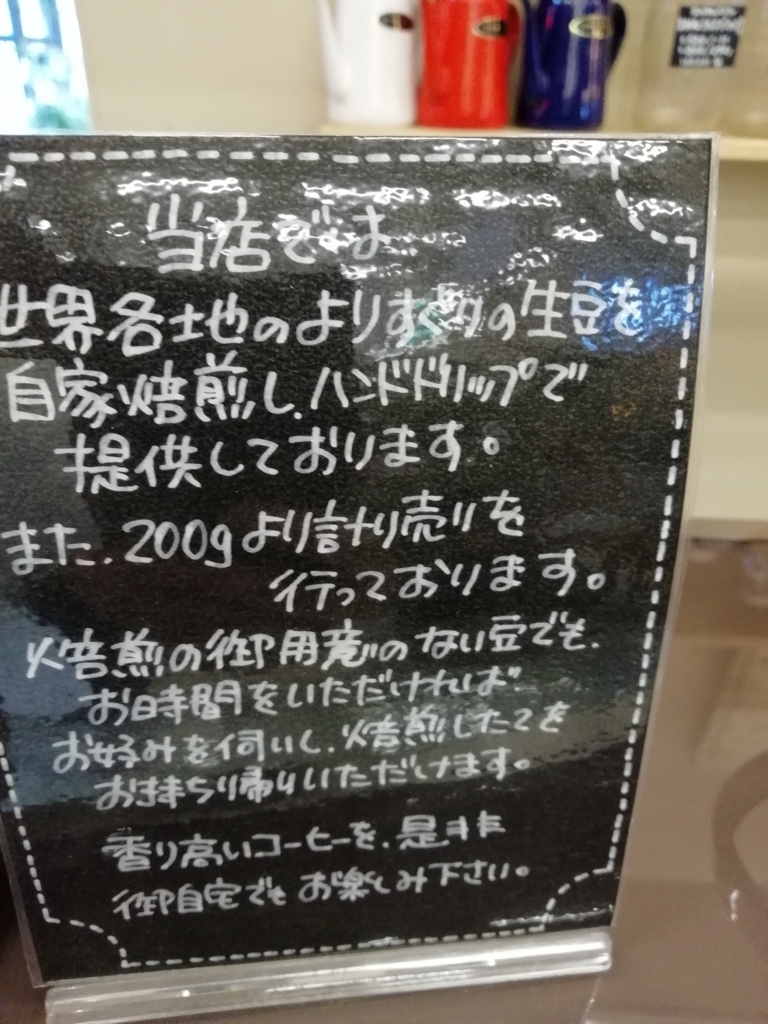 当店では
世界各地のよりすぐりの生豆を
自家焙煎し、ハンドドリップで
提供しております。
また、200gより計り売りを
行っております。
焙煎の御用意のない豆でも、
お時間をいただければ
お好みを伺いし、焙煎したてを
お持ち帰りいただけます。
香り高いコーヒーを、是非
御自宅でもお楽しみ下さい。